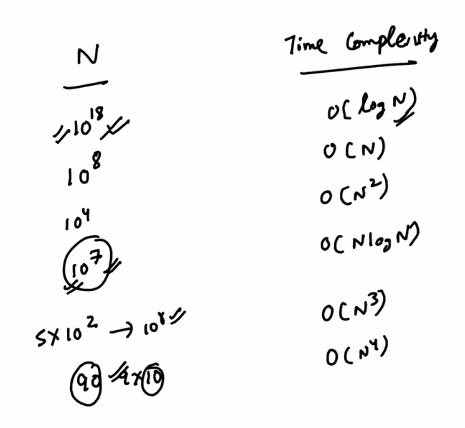 N Time Complexity
10^18 O(log N)
10^8 O(N)
10^4 O(N^2)
10^7 O(N log N)
5 X 10^2 → 10^8 O(N^3)
90 9 x 10 O(N^4)